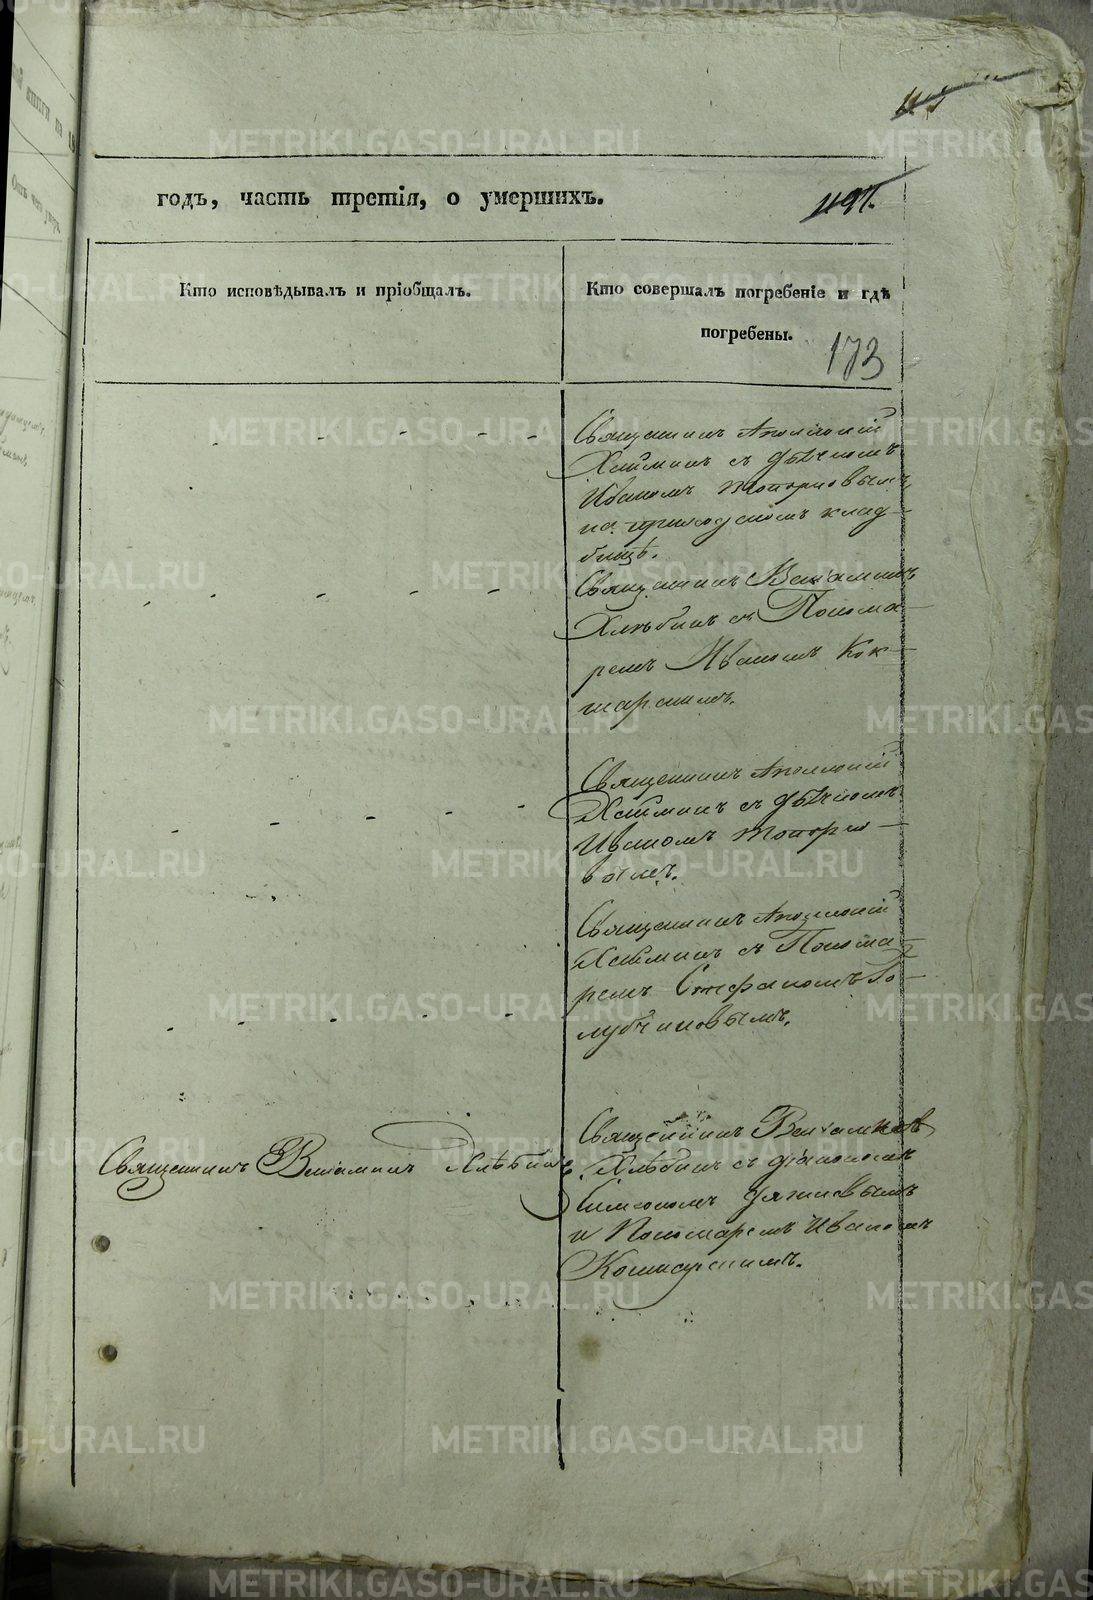 годъ, часть третія, о умершихъ.
1197.
Кто исповѣдывалъ и пріобщалъ.
Кто совершалъ погребеніе и гдѣ
погребены.
173
Священникъ Аполлоній
с дьячкомъ
Иваномъ Топорковымъ
на приходскомъ клад-
бищѣ.
Священникъ Веніаминъ
Хлѣбинъ съ Понома-
ремъ Иваномъ Кок-
шарскимъ.
Священникъ Аполлоній
съ дьячкомъ
Иваномъ Топорко-
вымъ.
Священникъ Аполлоній
съ Понома-
ремъ Стефаномъ Го-
лубчиковымъ.
Священникъ Веніаминъ Хлѣбинъ
Священникъ Веніаминъ
Хлѣбинъ съ діакономъ
Симеономъ
и Пономаремъ Иваномъ
Кокшарскимъ.
METRIKI.GASO-URAL.RU